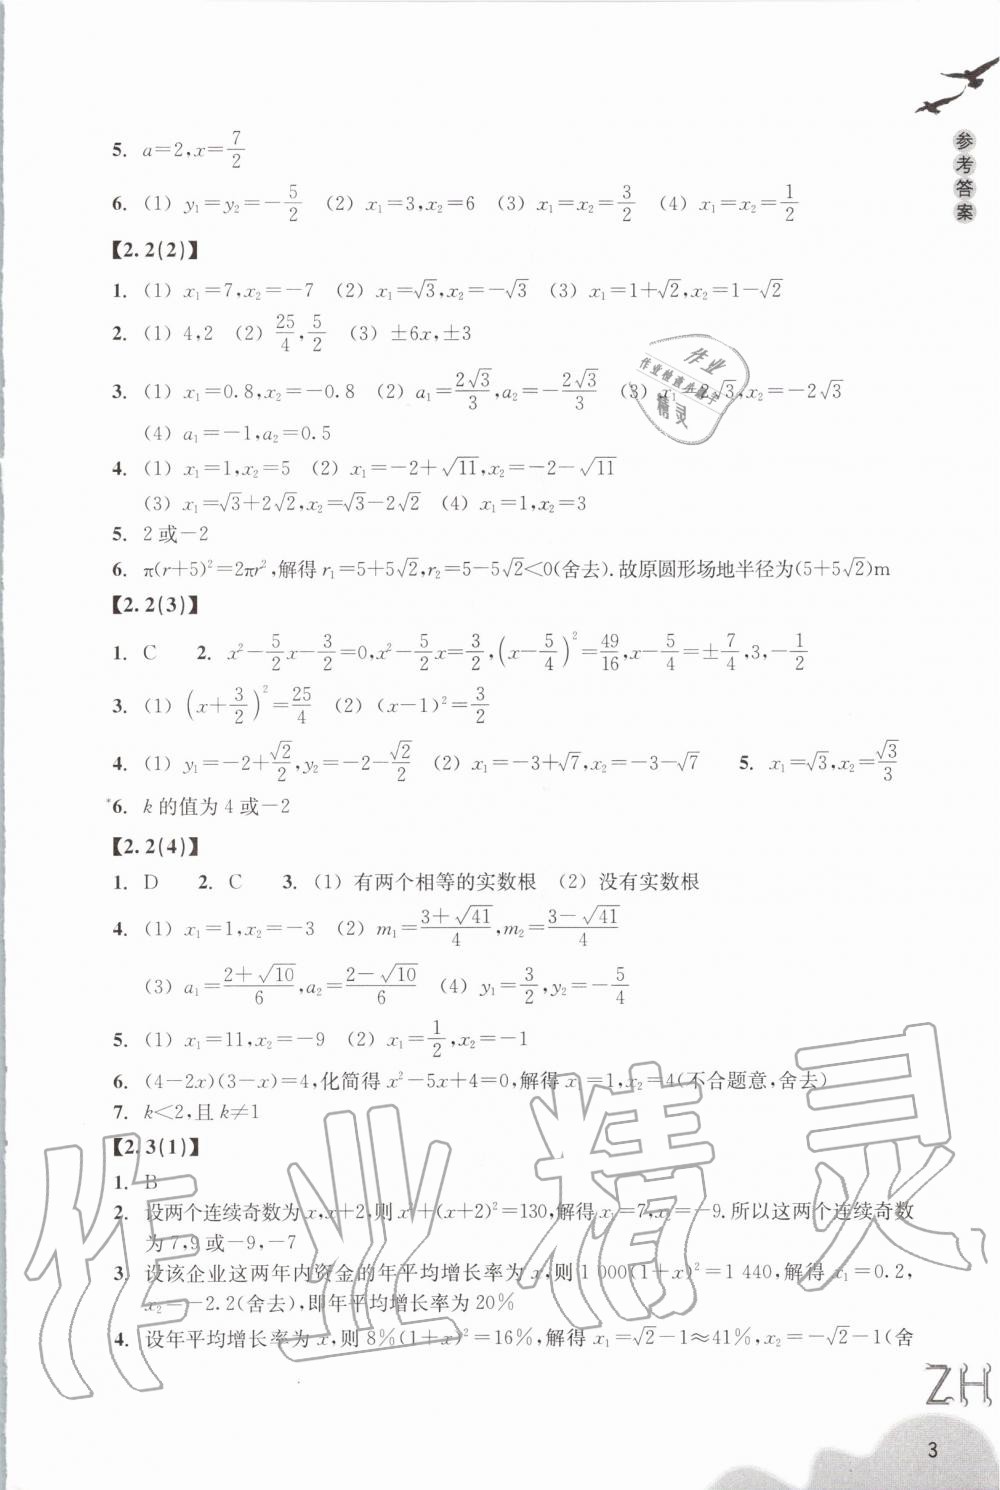 参考答案
5. a=2,x=7/2
6. (1) y₁=y₂=-5/2 (2) x₁=3,x₂=6 (3) x₁=x₂=3/2 (4) x₁=x₂=1/2
【2.2(2)】
1. (1) x₁=7,x₂=-7 (2) x₁=√3,x₂=-√3 (3) x₁=1+√2,x₂=1-√2
2. (1) 4,2 (2) 25/4,5/2 (3) ±6x,±3
3. (1) x₁=0.8,x₂=-0.8 (2) a₁=2√3/3,a₂=-2√3/3 (3) x₁=2√3,x₂=-2√3
(4) a₁=-1,a₂=0.5
4. (1) x₁=1,x₂=5 (2) x₁=-2+√11,x₂=-2-√11
(3) x₁=√3+2√2,x₂=√3-2√2 (4) x₁=1,x₂=3
5. 2或-2
6. π(r+5)²=2πr²,解得r₁=5+5√2,r₂=5-5√2<0(舍去).故原圆形场地半径为(5+5√2)m
【2.2(3)】
1. C 2. x²-5/2x-3/2=0,x²-5/2x=3/2,(x-5/4)²=49/16,x-5/4=±7/4,3,-1/2
3. (1) (x+3/2)²=25/4 (2) (x-1)²=3/2
4. (1) y₁=-2+√2/2,y₂=-2-√2/2 (2) x₁=-3+√7,x₂=-3-√7 5. x₁=√3,x₂=√3/3
*6. k的值为4或-2
【2.2(4)】
1. D 2. C 3. (1) 有两个相等的实数根 (2) 没有实数根
4. (1) x₁=1,x₂=-3 (2) m₁=(3+√41)/4,m₂=(3-√41)/4
(3) a₁=(2+√10)/6,a₂=(2-√10)/6 (4) y₁=3/2,y₂=-5/4
5. (1) x₁=11,x₂=-9 (2) x₁=1/2,x₂=-1
6. (4-2x)(3-x)=4,化简得x²-5x+4=0,解得x₁=1,x₂=4(不合题意,舍去)
7. k<2,且k≠1
【2.3(1)】
1. B
2. 设两个连续奇数为x,x+2,则x²+(x+2)²=130,解得x₁=7,x₂=-9.所以这两个连续奇数
为7,9或-9,-7
3. 设该企业这两年内资金的年平均增长率为x,则1 000(1+x)²=1 440,解得x₁=0.2,
x₂=-2.2(舍去),即年平均增长率为20%
4. 设年平均增长率为x,则8%(1+x)²=16%,解得x₁=√2-1≈41%,x₂=-√2-1(舍
ZH
3
作业精灵
作业
精灵